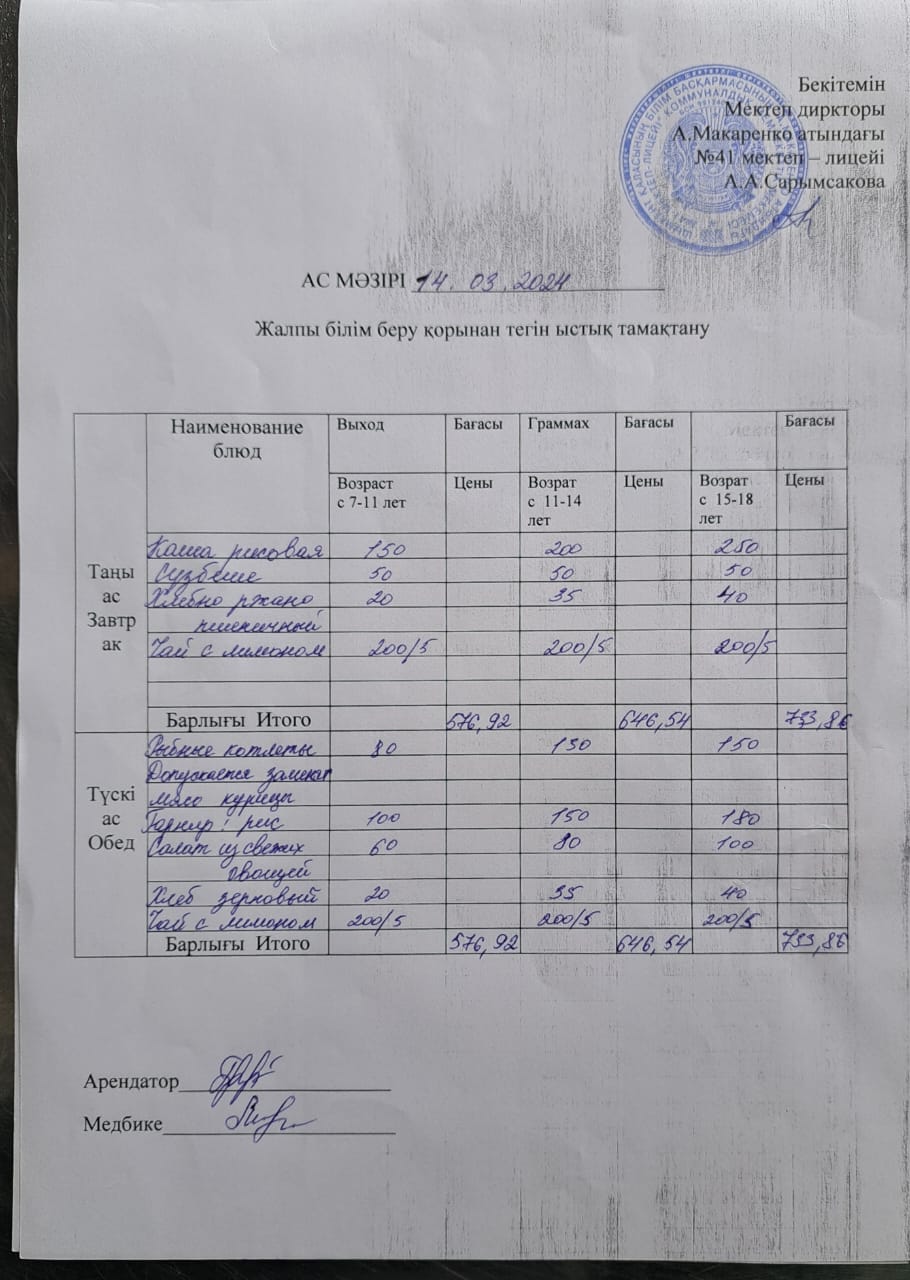 Бекітемін
Мектеп диркторы
А.Макаренко атындағы
№41 мектеп – лицейі
А.А.Сарымсакова
АС МӘЗІРІ 14.03.2024
Жалпы білім беру қорынан тегін ыстық тамақтану
Наименование блюд Выход Бағасы Граммах Бағасы Бағасы
Возраст с 7-11 лет Цены Возрат с 11-14 лет Цены Возрат с 15-18 лет Цены
Таңы ас Завтрак
Каша рисовая 150 200 250
Сузбеше 50 50 50
Хлебно ржано 20 35 40
пшеничный
Чай с лимоном 200/5 200/5 200/5
Барлығы Итого 576,92 646,54 733,86
Түскі ас Обед
Рыбные котлеты 80 130 150
Допускается замена
мясо курицы
Гарнир: рис 100 150 180
Салат из свежих 60 80 100
овощей
Хлеб зерновый 20 35 40
Чай с лимоном 200/5 200/5 200/5
Барлығы Итого 576,92 646,54 733,86
Арендатор
Медбике